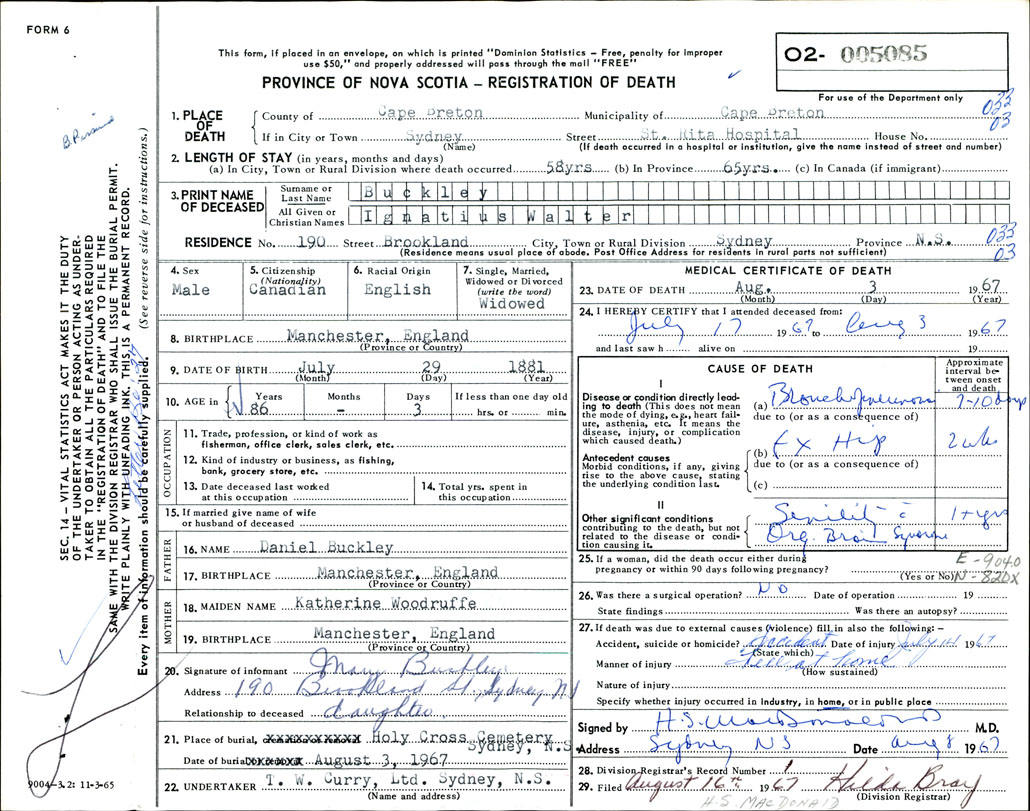 FORM 6
This form, if placed in an envelope, on which is printed "Dominion Statistics – Free, penalty for improper
use $50," and properly addressed will pass through the mail "FREE"
O2- 005085
PROVINCE OF NOVA SCOTIA – REGISTRATION OF DEATH
For use of the Department only
033
03
1. PLACE OF DEATH
County of Cape Breton Municipality of Cape Breton
If in City or Town Sydney Street St. Rita Hospital House No.
(Name) (If death occurred in a hospital or institution, give the name instead of street and number)
2. LENGTH OF STAY (in years, months and days)
(a) In City, Town or Rural Division where death occurred 58yrs (b) In Province 65yrs. (c) In Canada (if immigrant)
3. PRINT NAME OF DECEASED
Surname or Last Name Buckley
All Given or Christian Names Ignatius Walter
RESIDENCE No. 190 Street Brookland City, Town or Rural Division Sydney Province N.S.
(Residence means usual place of abode. Post Office Address for residents in rural parts not sufficient)
033
03
4. Sex
Male
5. Citizenship (Nationality)
Canadian
6. Racial Origin
English
7. Single, Married, Widowed or Divorced (write the word)
Widowed
8. BIRTHPLACE Manchester, England
(Province or Country)
9. DATE OF BIRTH July 29 1881
(Month) (Day) (Year)
10. AGE in Years 86 Months – Days 3 If less than one day old hrs. or min.
OCCUPATION
11. Trade, profession, or kind of work as
fisherman, office clerk, sales clerk, etc.
12. Kind of industry or business, as fishing,
bank, grocery store, etc.
13. Date deceased last worked
at this occupation
14. Total yrs. spent in
this occupation
15. If married give name of wife
or husband of deceased
FATHER
16. NAME Daniel Buckley
17. BIRTHPLACE Manchester, England
(Province or Country)
MOTHER
18. MAIDEN NAME Katherine Woodruffe
19. BIRTHPLACE Manchester, England
(Province or Country)
20. Signature of informant Mary Buckley
Address 190 Brookland St, Sydney NS
Relationship to deceased daughter
21. Place of burial, Holy Cross Cemetery
Sydney, N.S.
Date of burial August 3, 1967
22. UNDERTAKER T. W. Curry, Ltd. Sydney, N.S.
(Name and address)
MEDICAL CERTIFICATE OF DEATH
23. DATE OF DEATH Aug. 3 1967
(Month) (Day) (Year)
24. I HEREBY CERTIFY that I attended deceased from:
July 17 1967 to Aug 3 1967
and last saw h alive on 19
CAUSE OF DEATH
Approximate interval between onset and death
I
Disease or condition directly leading to death (This does not mean the mode of dying, e.g., heart failure, asthenia, etc. It means the disease, injury, or complication which caused death.)
(a) Bronchopneumonia 7-10 days
due to (or as a consequence of)
Antecedent causes
Morbid conditions, if any, giving rise to the above cause, stating the underlying condition last.
(b) Fx Hip 2 wks
due to (or as a consequence of)
(c)
II
Other significant conditions
contributing to the death, but not related to the disease or condition causing it.
Senility c 1+ yrs
Org. Brain Syndrome
25. If a woman, did the death occur either during
pregnancy or within 90 days following pregnancy?
(Yes or No)
E-9040
N-820X
26. Was there a surgical operation? NO Date of operation 19
State findings Was there an autopsy?
27. If death was due to external causes (violence) fill in also the following: –
Accident, suicide or homicide? Accident Date of injury July 14 1967
(State which)
Manner of injury Fell at home
(How sustained)
Nature of injury
Specify whether injury occurred in Industry, in home, or in public place
Signed by H.S. MacDonald M.D.
Address Sydney NS Date Aug 8 1967
28. Division Registrar's Record Number
29. Filed August 16th 1967 Hilda Bray
(Division Registrar)
H.S. MACDONALD
SEC. 14 – VITAL STATISTICS ACT MAKES IT THE DUTY
OF THE UNDERTAKER OR PERSON ACTING AS UNDER-
TAKER TO OBTAIN ALL THE PARTICULARS REQUIRED
IN THE "REGISTRATION OF DEATH" AND TO FILE THE
SAME WITH THE DIVISION REGISTRAR WHO SHALL ISSUE THE BURIAL PERMIT.
WRITE PLAINLY WITH UNFADING INK. THIS IS A PERMANENT RECORD.
Every item of information should be carefully supplied. (See reverse side for instructions.)
9004-3.2: 11-3-65